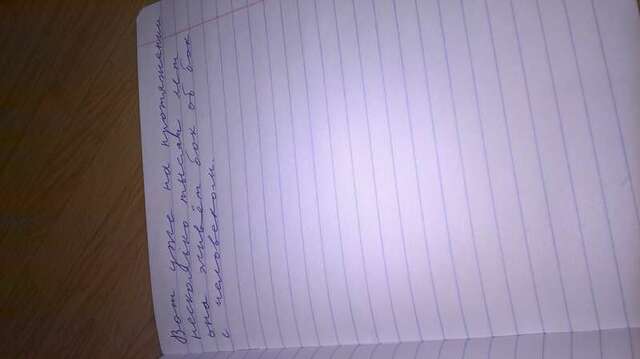 Вот уже на протяжении
несколько тысяч лет
она живёт бок об бок
с человеком.